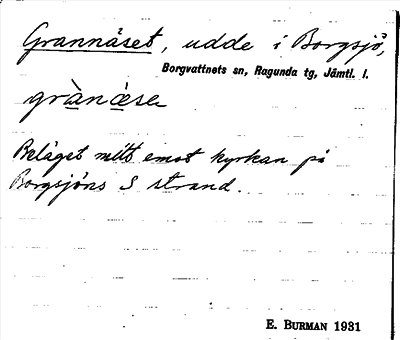 Grannäset, udde i Borgsjö,
Borgvattnets sn, Ragunda tg, Jämtl. l.
grànǽse
Beläget mitt emot kyrkan på
Borgsjöns S strand.
E. BURMAN 1931